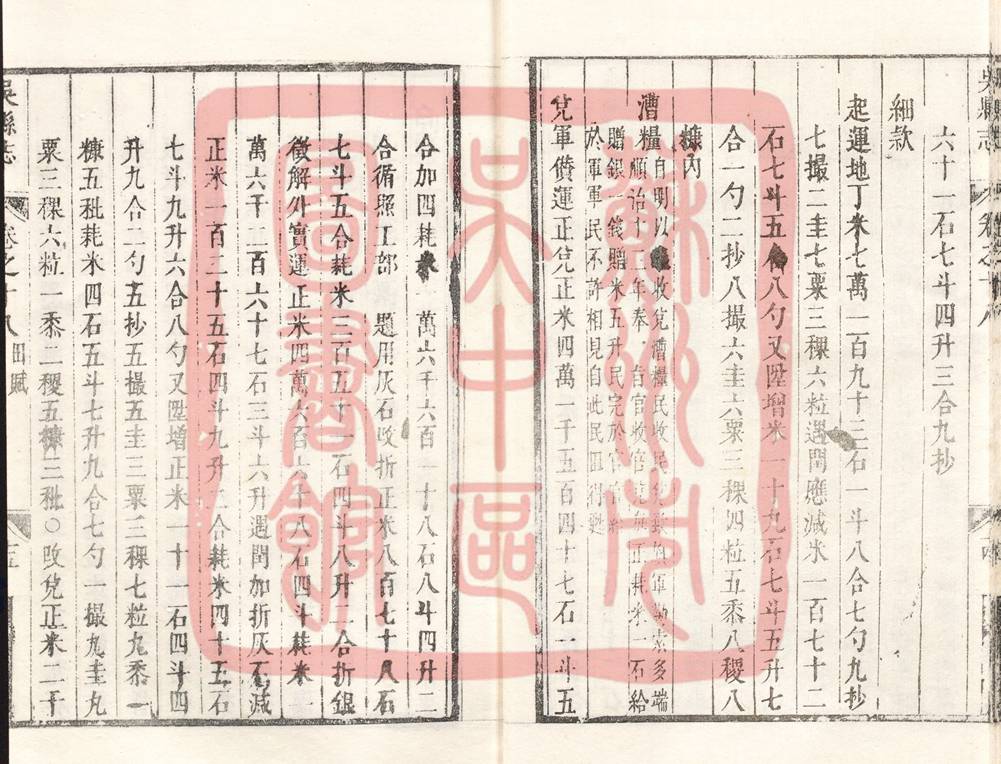 吳縣志 卷之十八
六十一石七斗四升三合九抄
細款
起運地丁米七萬二百九十三石一斗八合七勺九抄
七撮二圭七粟三稞六粒遇閏應減米一百七十二
石七斗五合八勺又陞增米一十九石七斗五升七
合一勺二抄八撮六圭六粟三稞四粒五黍八稷八
糠內
漕糧自明以收兌漕糧民收民兌軍勒索多端
順治十二年奉旨官收官兌正耗米一石給
贈銀一錢贈米五升民完於官官
於軍軍民不許相見自此民困得甦
兌軍儹運正兌正米四萬一千五百四十七石一斗五
合加四耗米一萬六千六百一十八石八斗四升二
合循照工部題用灰石改折正米八百七十八石
七斗五合耗米三百五十一石四斗八升二合折銀
徵解外實運正米四萬六百六十八石四斗耗米一
萬六千二百六十七石三斗六升遇閏加折灰石減
正米一百二十五石四斗九升二合耗米四十五石
七斗九升六合八勺又陞增正米一十一石四斗四
升九合二勺五抄五撮五圭三粟三稞七粒九黍一
糠五秕耗米四石五斗七升九合七勺一撮九圭九
粟三稞六粒一黍二稷五糠三秕○改兌正米二千
吳縣志 卷之十八 田賦